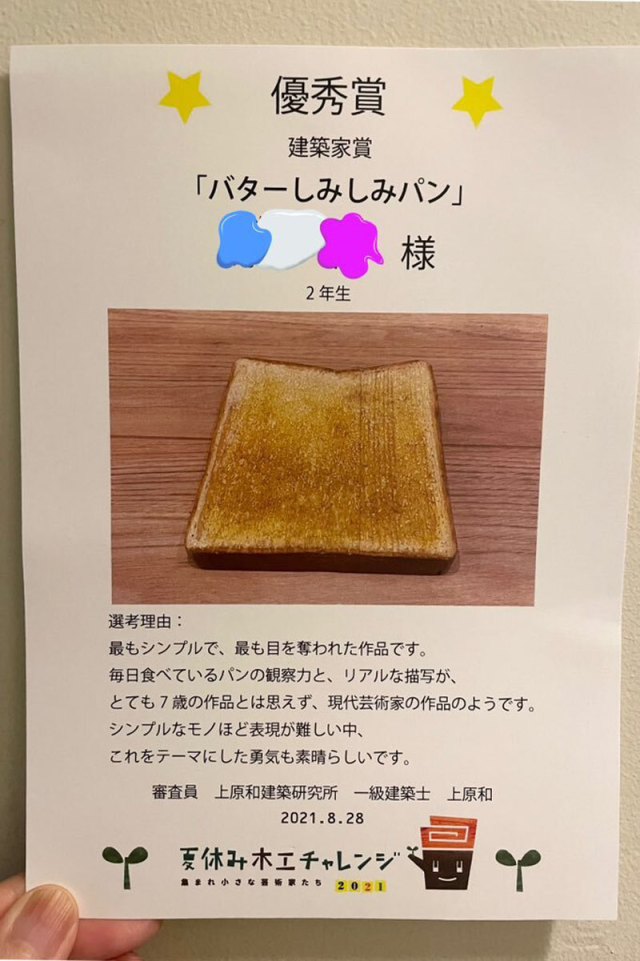 優秀賞
建築家賞
「バターしみしみパン」
様
2年生
選考理由：
最もシンプルで、最も目を奪われた作品です。
毎日食べているパンの観察力と、リアルな描写が、
とても7歳の作品とは思えず、現代芸術家の作品のようです。
シンプルなモノほど表現が難しい中、
これをテーマにした勇気も素晴らしいです。
審査員　上原和建築研究所　一級建築士　上原和
2021.8.28
夏休み木工チャレンジ
集まれ小さな芸術家たち 2021